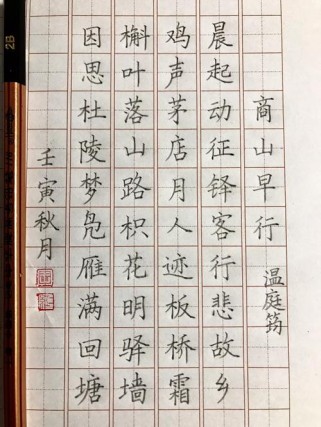 商山早行
温庭筠
晨起动征铎客行悲故乡
鸡声茅店月人迹板桥霜
槲叶落山路枳花明驿墙
因思杜陵梦凫雁满回塘
壬寅秋月
2B